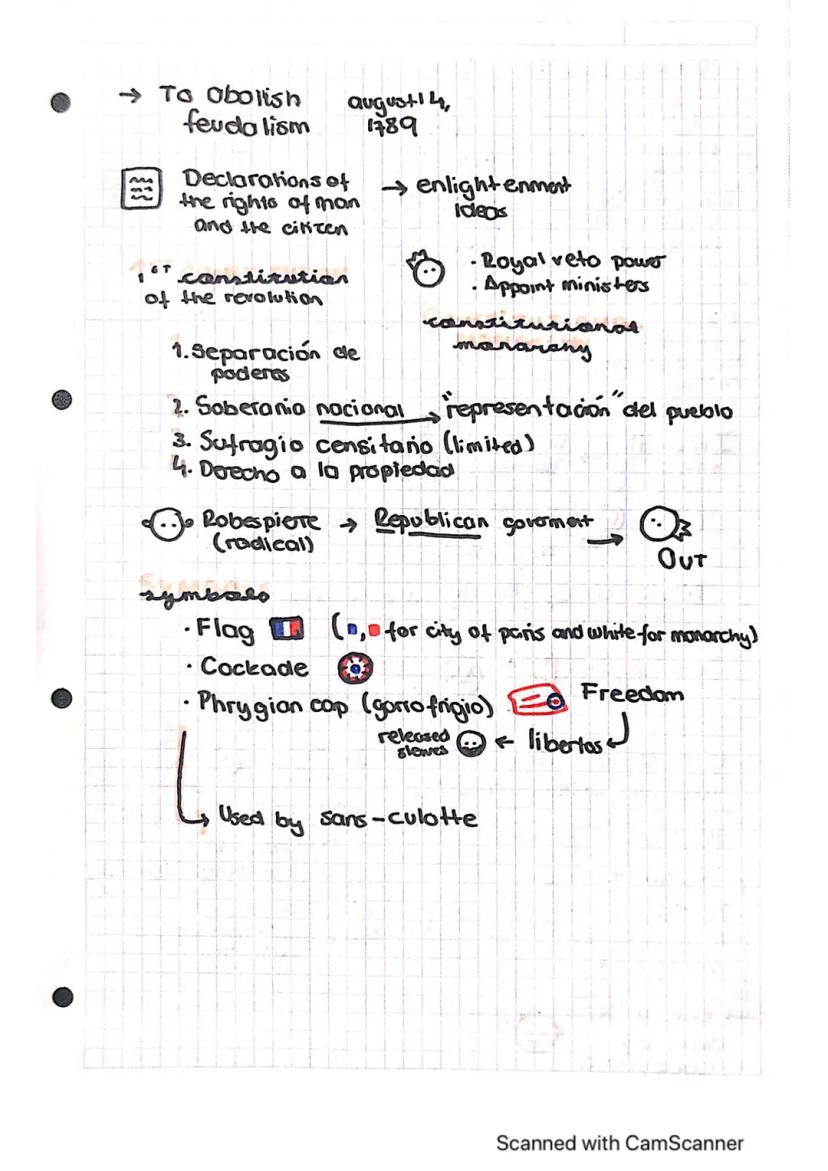 → To abolish
feudalism
august 14,
1789
Declarations of
the rights of man
and the citizen
→ enlightenment
ideas
1st constitution
of the revolution
· Royal veto power
· Appoint ministers
constitutional
monarchy
1. Separación de
poderes
2. Soberania nacional → "representación" del pueblo
3. Sufragio censitario (limited)
4. Derecho a la propiedad
Robespierre → Republican goverment →
(radical)
OUT
symbols
· Flag ( , for city of paris and white for monarchy)
· Cockade
· Phrygian cap (gorro frigio) Freedom
released
slaves ← libertas
→ Used by sans-culotte
Scanned with CamScanner